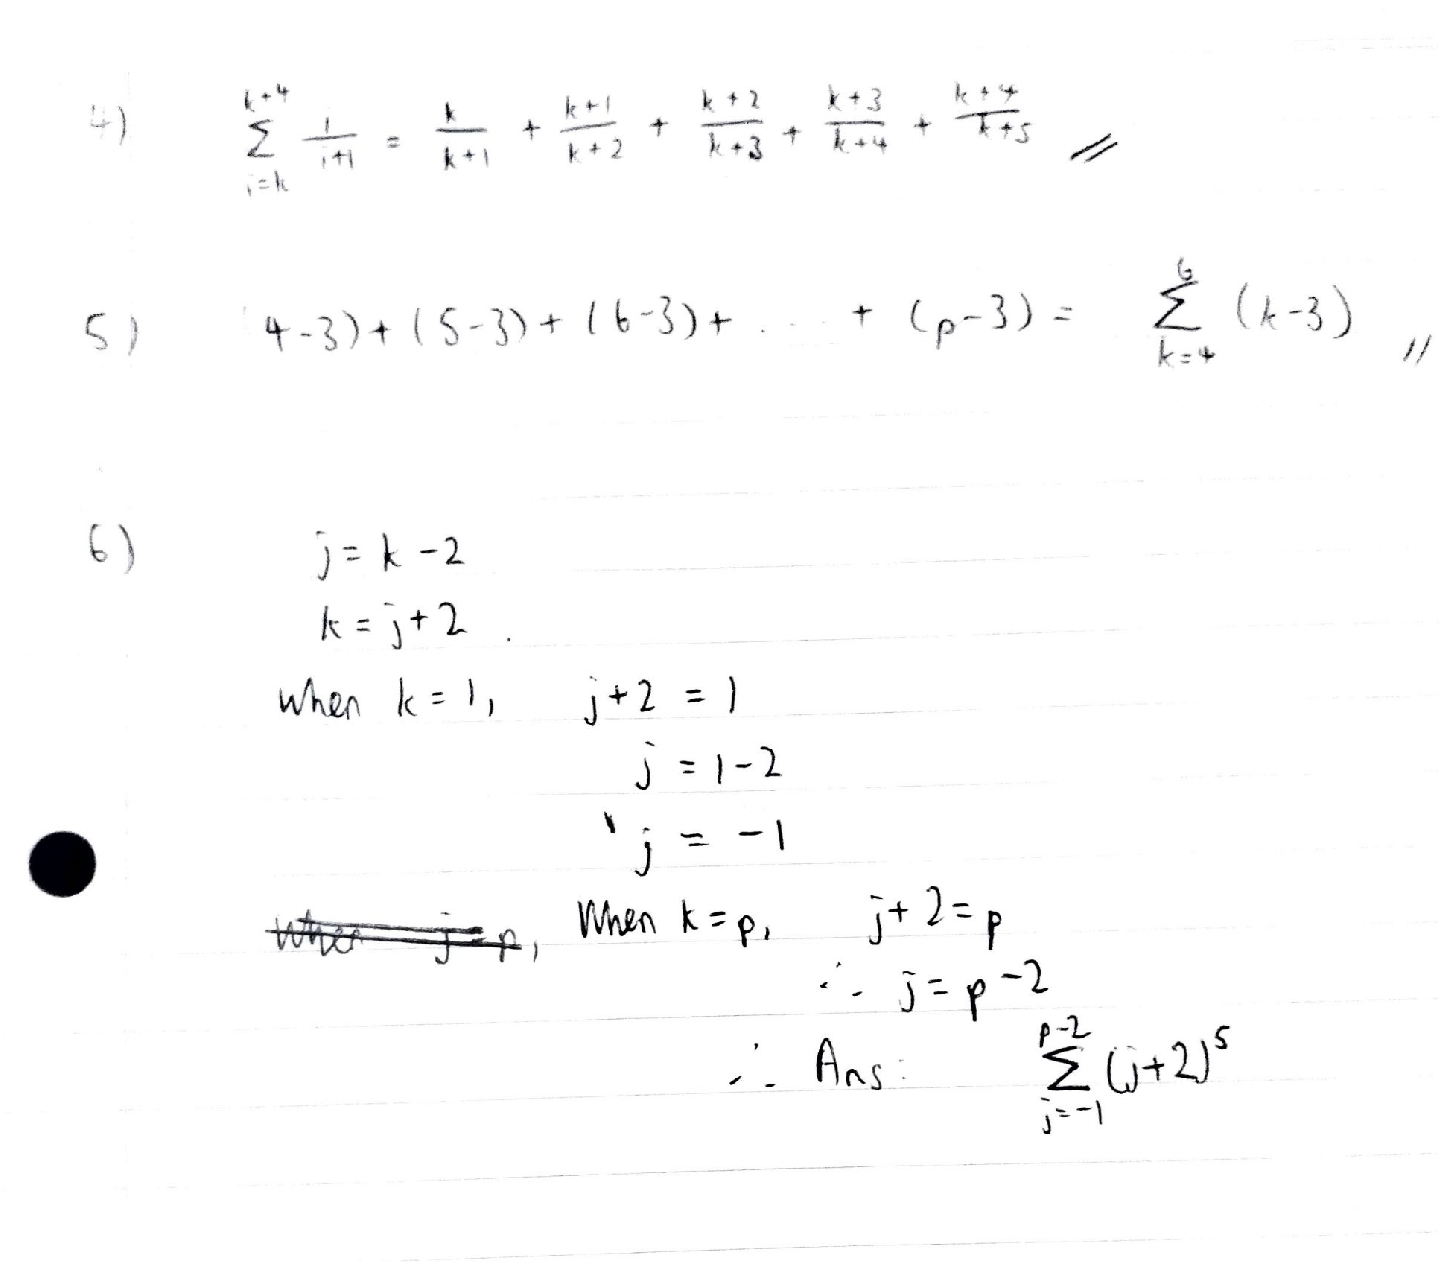 4) \sum_{i=k}^{k+4} \frac{1}{i+1} = \frac{k}{k+1} + \frac{k+1}{k+2} + \frac{k+2}{k+3} + \frac{k+3}{k+4} + \frac{k+4}{k+5} //
5) 4-3) + (5-3) + (6-3) + .... + (p-3) = \sum_{k=4}^{6} (k-3) //
6) j = k - 2
k = j + 2
when k = 1, j + 2 = 1
j = 1 - 2
j = -1
When j = p, When k = p, j + 2 = p
∴ j = p - 2
∴ Ans: \sum_{j=-1}^{p-2} (j+2)^5